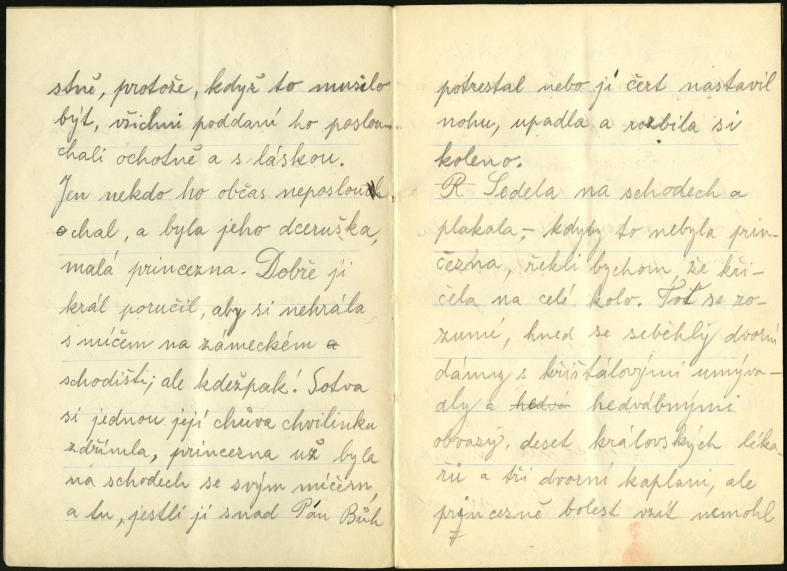 stně, protože, když to musilo
být, všichni poddaní ho poslou-
chali ochotně a s láskou.
Jen nekdo ho občas neposlouch
ochal, a byla jeho dceruška,
malá princezna. Dobře ji
král poručil, aby si nehrála
s míčem na zámeckém a
schodišti; ale kdežpak! Sotva
si jednou její chůva chvilinku
zdřímla, princezna už byla
na schodech se svým míčem
a tu, jestli ji snad Pán Bůh
potrestal nebo jí čert nastavil
nohu, upadla a rozbila si
koleno.
R Sedela na schodech a
plakala, - kdyby to nebyla prin-
cezna, řekli bychom, že kři-
čela na celé kolo. Toť se ro-
zumí, hned se seběhly dvorní
dámy s křištálovými umýva-
dly a hedvá hedvábnými
obvazy, deset královských léka-
řů a tři dvorní kaplani, ale
princezně bolest vzít nemohl